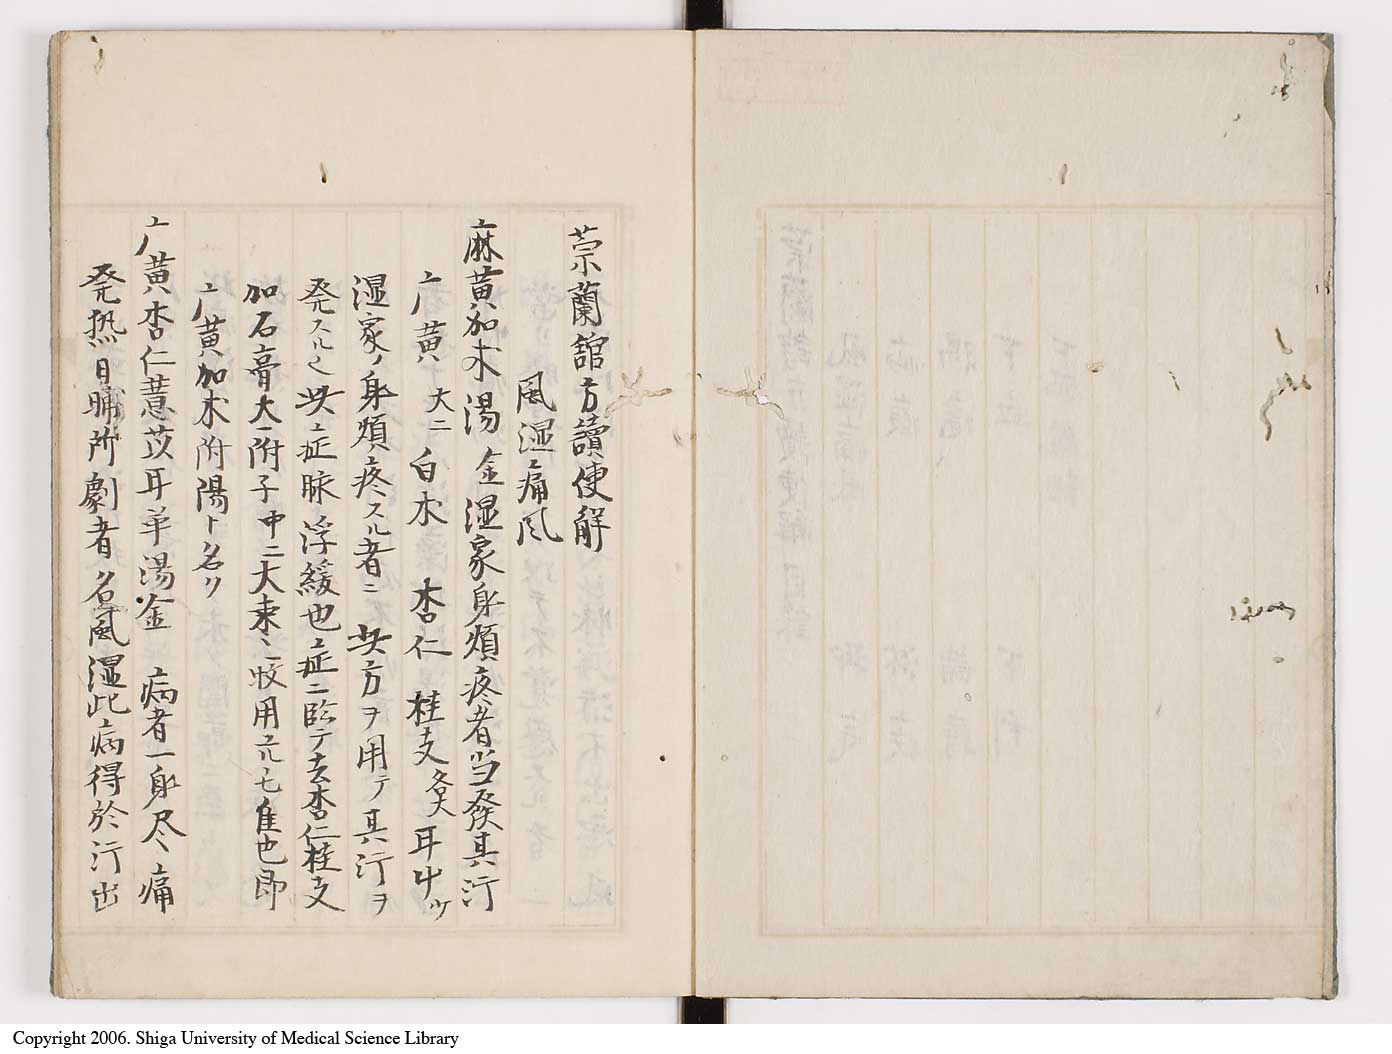 崇蘭舘方讀使解
風湿痛風
麻黄加朮湯 金湿家身煩疼者当發其汗
广黄大二 白朮 杏仁 桂支 炙耳中ツ
湿家ノ身煩疼スル者ニ 此方ヲ用テ其汗ヲ
発スルく 此症脉浮緩也症ニ臨テ去杏仁桂支
加石膏大一附子中ニ大棗ニ 用 モ佳也即
广黄加朮附湯ト名ク
广黄杏仁薏苡耳草湯金 病者一身尽痛
発热日晡所劇者名風湿此病得於汗出
Copyright 2006. Shiga University of Medical Science Library